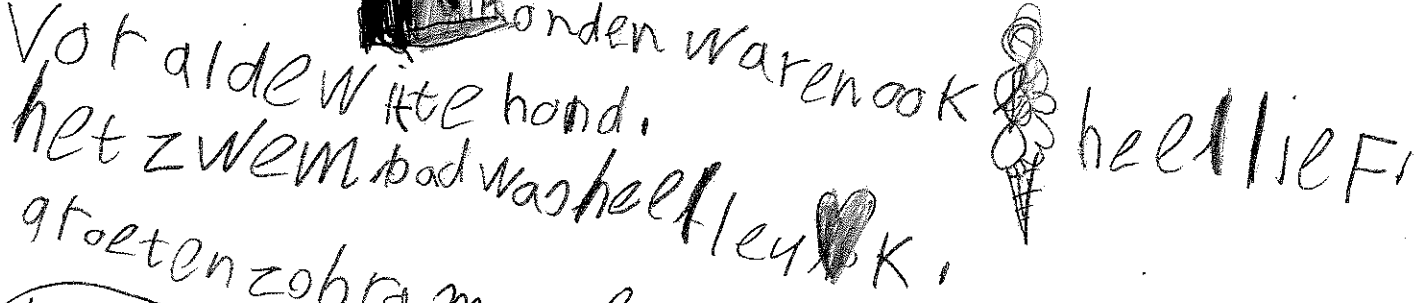 honden waren ook heel lief.
Vor al de witte hond.
het zwembad was heel leuk.
groeten zohra